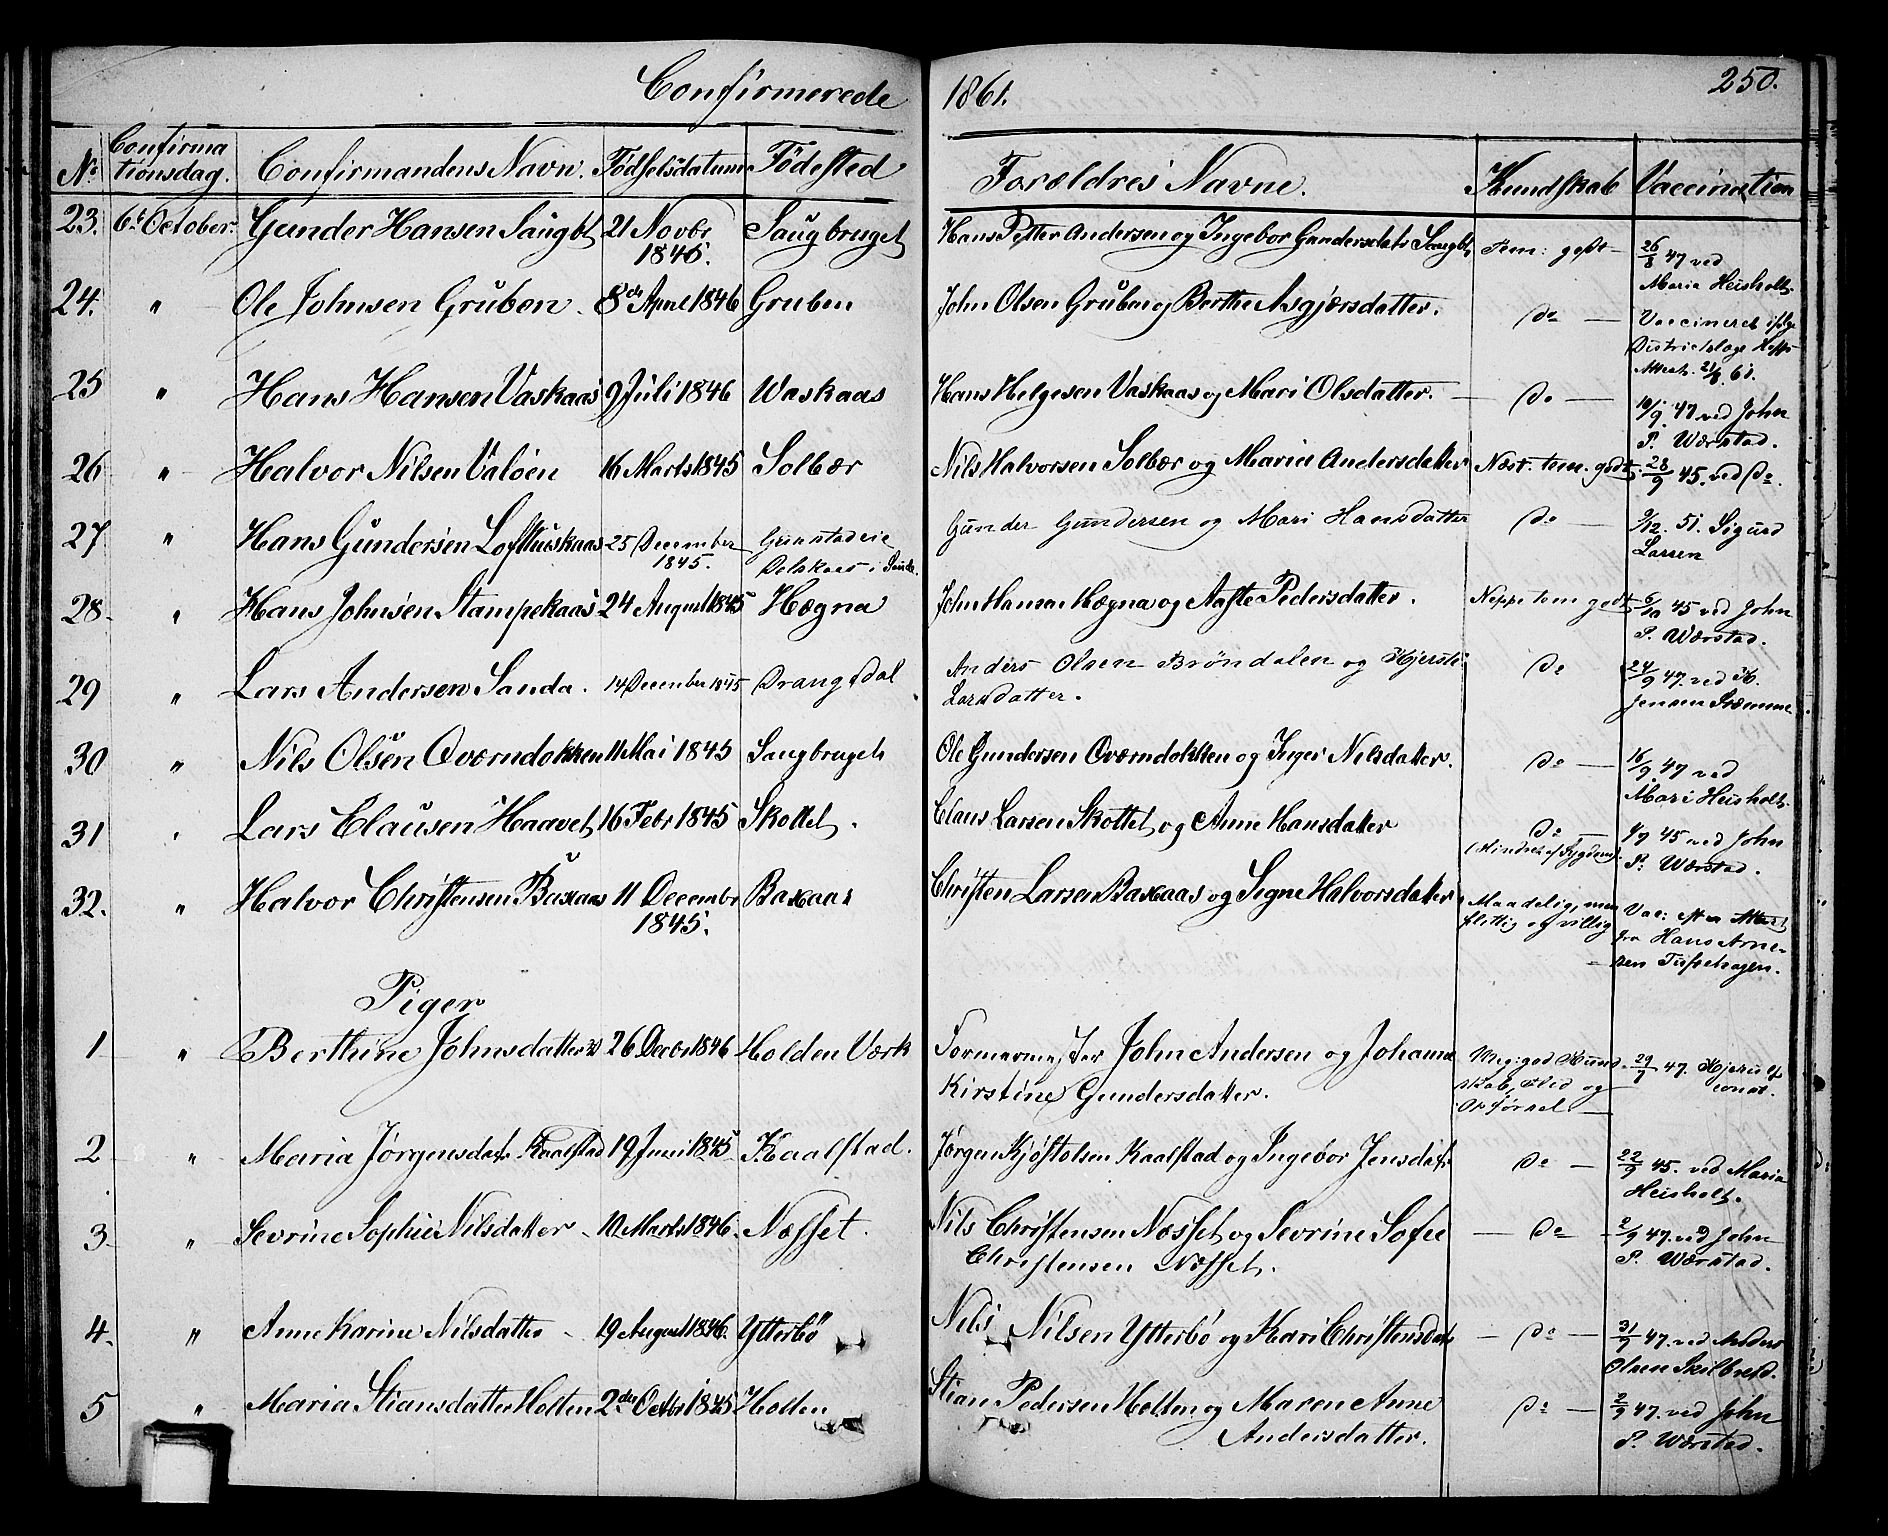 Confirmerede 1861. 250.
No Confirmationsdag. Confirmandens Navn. Födselsdatum Födested Forældres Navne. Kundskab Vaccination
23. 6te October. Gunder Hansen Saugbt 21 Novbr 1845. Saugbruget Hans Petter Andersen og Ingebor Gundersdatr Saugbt Tem: godt — 26/8 47 ved
Maria Heisholt.
24. " Ole Johnsen Gruben. 8de April 1846 Gruben John Olsen Gruben og Berthe Asgjersdatter. do — Vaccineret ifölge
Districtslæge
Attest. 21/8 61.
25 " Hans Hansen Vaskaas 9 Juli 1846 Waskaas Hans Helgesen Vaskaas og Mari Olsdatter. — do — 10/9. 47 ved John
P. Wærstad.
26 " Halvor Nilsen Valöen 16 Marts 1845 Solbær Nils Halvorsen Solbær og Maria Andersdatter Næst. tem. godt. 28/9 45. ved do.
27 " Hans Gundersen Lofthuskaas 25 December 1845. Grinstadeie
i Gunder Gundersen og Mari Hansdatter do — 9/12. 51. Sigurd
Larsen
28. " Hans Johnsen Stampekaas 24 August 1845 Hægna John Hansen Hægna og Aaste Pedersdatter. Neppe tem godt 6/10 45 ved John
P. Wærstad.
29 " Lars Andersen Sanda. 14 December 1845 Drangedal Anders Olsen Bröndalen og Kjersti
Larsdatter. do 24/9 47. ved H.
Jensen Stræmme
30 " Nils Olsen Qværndokken 11 Mai 1845 Saugbruget Ole Gundersen Qværndokken og Inger Nilsdatter. do — 16/9. 47 ved
Mari Heisholt.
31 " Lars Clausen Haavet 16 Febr 1845 Skottet. Claus Larsen Skottet og Anne Hansdatter do 9/9 45 ved John
P. Wærstad.
32. " Halvor Christensen Baxaas 11 Decembr 1845. Baxaas Christen Larsen Baxaas og Signe Halvorsdatter Maadelig, men
flittig og villig Vac: efter Attest
fra Hans Arne-
sen Tufsehagen.
Piger
1 " Berthine Johnsdatter 26 Decbr 1846 Holden Værk Formermester John Andersen og Johanne
Kirstine Gundersdatter. Meg: god Kund-
skab, Flid og
Opförsel — 29/7 47.
2 " Maria Jörgensdatr Kaalstad 19 Juni 1845 Kaalstad. Jörgen Kjöstolsen Kaalstad og Ingebor Jensdatr do — 22/9 45. ved Maria
Heisholt.
3. " Sevrine Sophie Nilsdatter. 10 Marts 1846. Næsset. Nils Christensen Næsset og Sevrine Sofie
Christensen Næsset. — do — 2/9 47. ved John
P. Wærstad.
4. " Anne Karine Nilsdatter 19 August 1846. Ytterbö Nils Nilsen Ytterbö og Kari Christensdatr — do — 31/9 47. ved Anders
Olsen Skilbred.
5 " Maria Stiansdatter Holten 2den Octbr 1845 Holten Stian Pedersen Holten og Maren Anne
Andersdatter. do — 2/9 47. ved John
P. Wærstad.